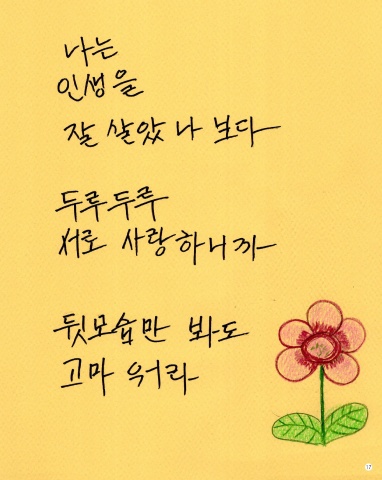 나는
인생을
잘 살았나 보다
두루두루
서로 사랑하니까
뒷모습만 봐도
고마워라
17